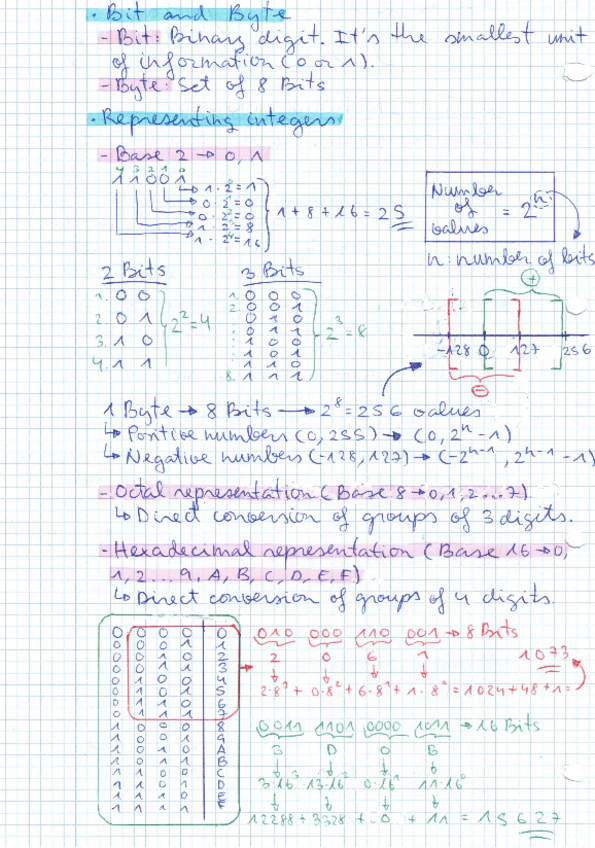 · Bit and Byte
- Bit: Binary digit. It's the smallest unit
of information (0 or 1).
- Byte: Set of 8 Bits
· Representing integers
- Base 2 → 0, 1
4 3 2 1 0
1 1 0 0 1
1 · 2⁰ = 1
0 · 2¹ = 0
0 · 2² = 0
1 · 2³ = 8
1 · 2⁴ = 16
1 + 8 + 16 = 25
Number of values = 2ⁿ
n: number of bits
2 Bits
1. 0 0
2. 0 1
3. 1 0
4. 1 1
2² = 4
3 Bits
1. 0 0 0
2. 0 0 1
: 0 1 0
: 0 1 1
: 1 0 0
: 1 0 1
: 1 1 0
8. 1 1 1
2³ = 8
+
-128 0 127 256
-
1 Byte → 8 Bits → 2⁸ = 256 values
↳ Positive numbers (0, 255) → (0, 2ⁿ - 1)
↳ Negative numbers (-128, 127) → (-2ⁿ⁻¹, 2ⁿ⁻¹ - 1)
- Octal representation (Base 8 → 0, 1, 2 ... 7)
↳ Direct conversion of groups of 3 digits.
- Hexadecimal representation (Base 16 → 0,
1, 2 ... 9, A, B, C, D, E, F)
↳ Direct conversion of groups of 4 digits.
0 0 0 0 0
0 0 0 1 1
0 0 1 0 2
0 0 1 1 3
0 1 0 0 4
0 1 0 1 5
0 1 1 0 6
0 1 1 1 7
1 0 0 0 8
1 0 0 1 9
1 0 1 0 A
1 0 1 1 B
1 1 0 0 C
1 1 0 1 D
1 1 1 0 E
1 1 1 1 F
010 000 110 001 → 8 Bits
2 0 6 1
2·8³ + 0·8² + 6·8¹ + 1·8⁰ = 1024 + 48 + 1 =
1073
0011 1101 0000 1011 → 16 Bits
3 D 0 B
3·16³ 13·16² 0·16¹ 11·16⁰
12288 + 3328 + 0 + 11 = 15627